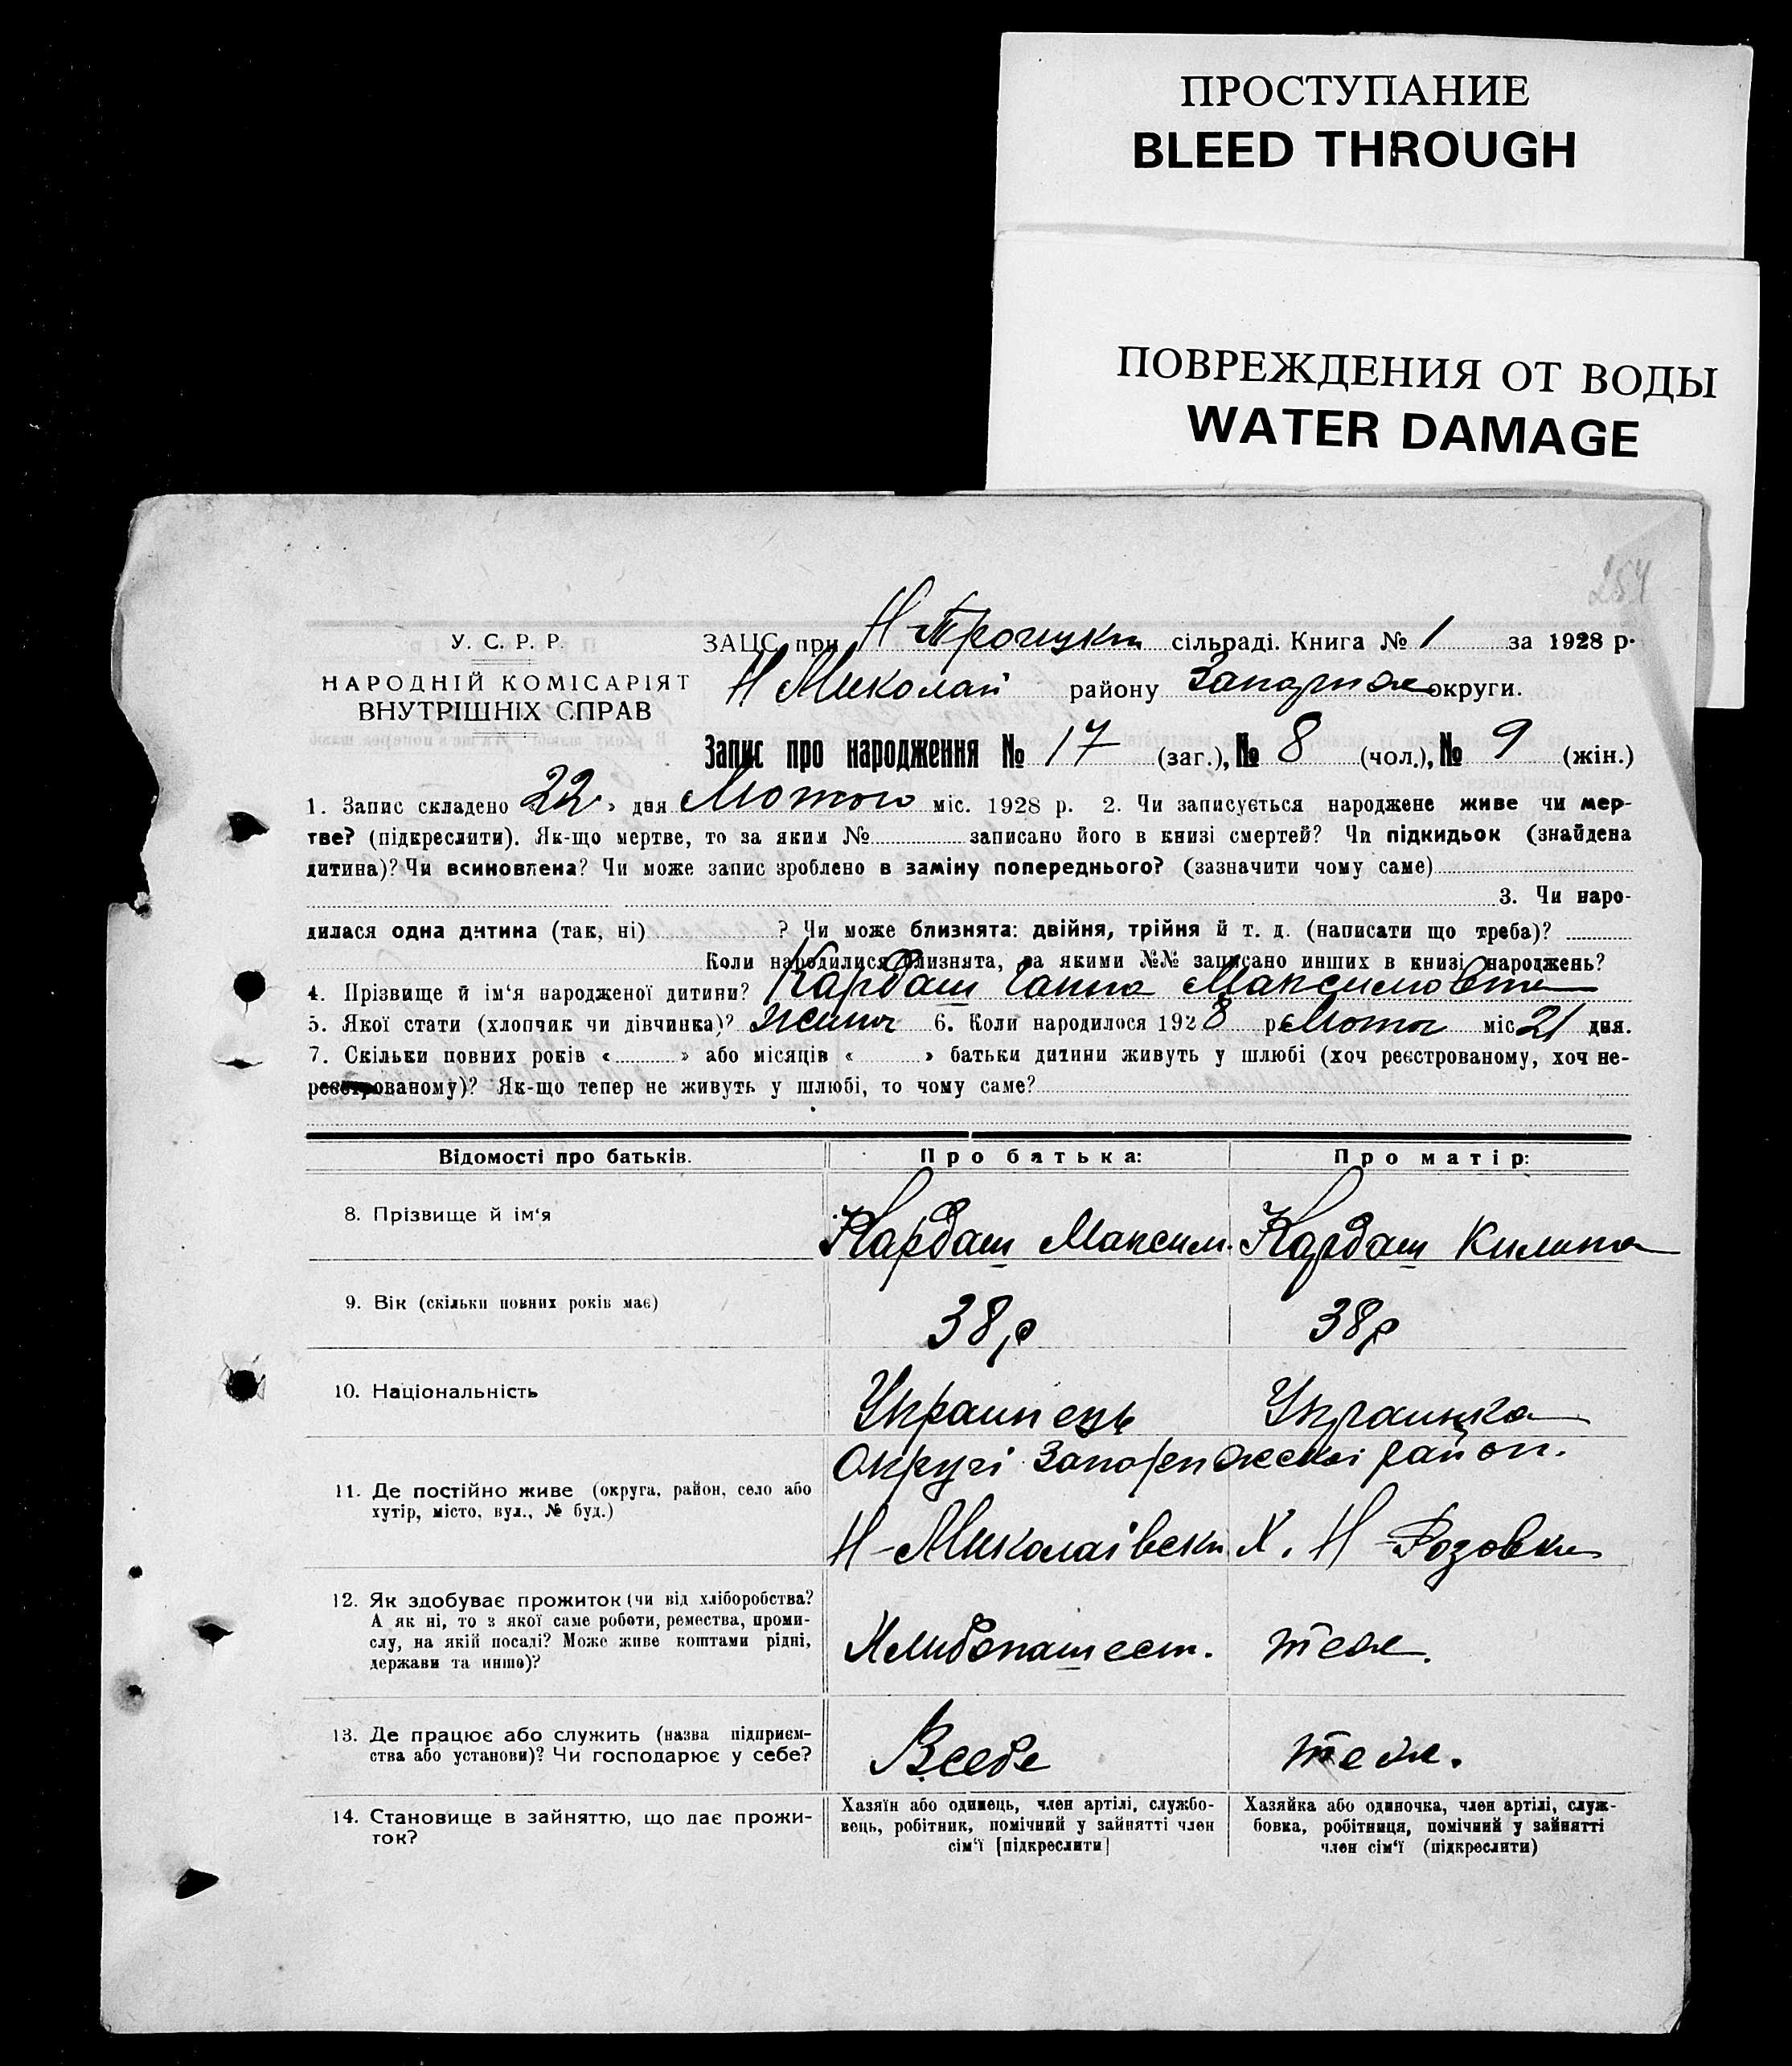 ПРОСТУПАНИЕ
BLEED THROUGH
ПОВРЕЖДЕНИЯ ОТ ВОДЫ
WATER DAMAGE
254
У. С. Р. Р. ЗАЦС при Н-Троицкм сільраді. Книга № 1 за 1928 р.
НАРОДНІЙ КОМІСАРІЯТ Н Миколай району Запориж округи.
ВНУТРІШНІХ СПРАВ
Запис про народження № 17 (заг.), № 8 (чол.), № 9 (жін.)
1. Запис складено «22» дня Лютого міс. 1928 р. 2. Чи записується народжене живе чи мер-
тве? (підкреслити). Як-що мертве, то за яким № записано його в книзі смертей? Чи підкидьок (знайдена
дитина)? Чи всиновлена? Чи може запис зроблено в заміну попереднього? (зазначити чому саме)
3. Чи наро-
дилася одна дитина (так, ні) ? Чи може близнята: двійня, трійня й т. д. (написати що треба)?
Коли народилися близнята, за якими №№ записано инших в книзі народжень?
4. Прізвище й ім'я народженої дитини? Кардаш Ганна Максимовна
5. Якої стати (хлопчик чи дівчинка)? жиноч 6. Коли народилося 1928 р. Лютог міс 21 дня.
7. Скільки повних років « » або місяців « » батьки дитини живуть у шлюбі (хоч реєстрованому, хоч не-
реєстрованому)? Як-що тепер не живуть у шлюбі, то чому саме?
Відомості про батьків. Про батька: Про матір:
8. Прізвище й ім'я Кардаш Максим. Кардаш Килина
9. Вік (скільки повних років має) 38 р 38 р
10. Національність Украинець Украинка
Округі Запорижскоі район.
11. Де постійно живе (округа, район, село або
хутір, місто, вул., № буд.)
Н-Миколаівски Х. Н-Розовки
12. Як здобуває прожиток (чи від хліборобства?
А як ні, то з якої саме роботи, ремества, проми-
слу, на якій посаді? Може живе коштами рідні,
держави та инше)?
Хлибопашест. теж.
13. Де працює або служить (назва підприєм-
ства або установи)? Чи господарює у себе?
Всебе теж.
14. Становище в зайняттю, що дає прожи-
ток?
Хазяїн або одинець, член артілі, службо-
вець, робітник, помічний у зайнятті член
сім'ї [підкреслити]
Хазяйка або одиночка, член артілі, служ-
бовка, робітниця, помічний у зайнятті
член сім'ї (підкреслити)